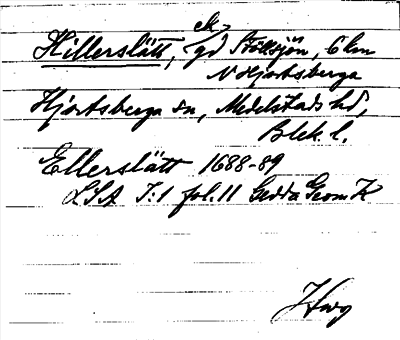 ck
Hillerslätt, gd Stöllsjön, 6 km
N Hjortsberga
Hjortsberga sn, Medelstads hd,
Blek. l.
Ellerslätt 1688-89
LSA I:1 fol. 11 Gedda Geom K